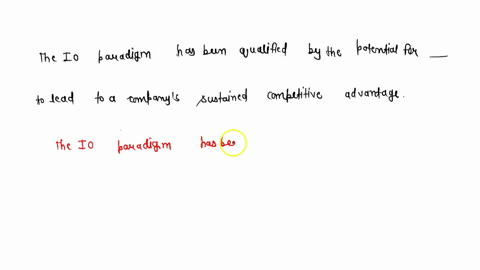 The IO paradigm has been qualified by the potential for __
to lead to a company's sustained competitive advantage.
The IO paradigm has bee